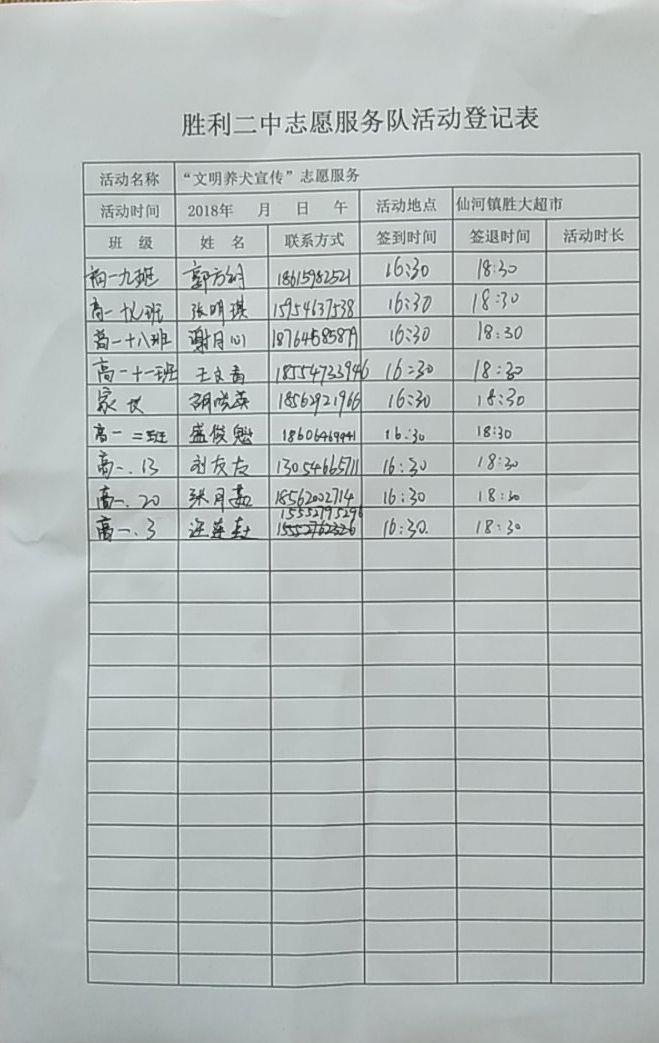 胜利二中志愿服务队活动登记表
活动名称 “文明养犬宣传”志愿服务
活动时间 2018年 月 日 午 活动地点 仙河镇胜大超市
班 级 姓 名 联系方式 签到时间 签退时间 活动时长
初一九班 18615982521 16:30 18:30
高一十八班 张明琪 15954637538 16:30 18:30
高一十八班 谢月心 18764585879 16:30 18:30
高一十一班 王文青 18554733946 16:30 18:30
家长 胡晓英 18562921966 16:30 18:30
高一二班 盛俊魁 18606469441 16:30 18:30
高一.13 刘友友 13054665711 16:30 18:30
高一.20 18562002714 16:30 18:30
15552795296
高一.3 15552762326 16:30. 18:30